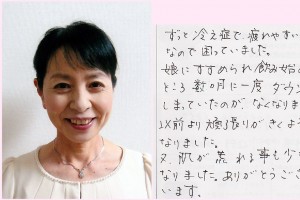 ずっと冷え症で、疲れやすい
なので困っていました。
娘にすすめられ飲み始め
ところ数ヶ月に一度ダウン
しまっていたのが、なくなりま
以前より頑張りがきくよう
なりました。
又、肌が荒れる事も少
なりました。ありがとうござ
います。